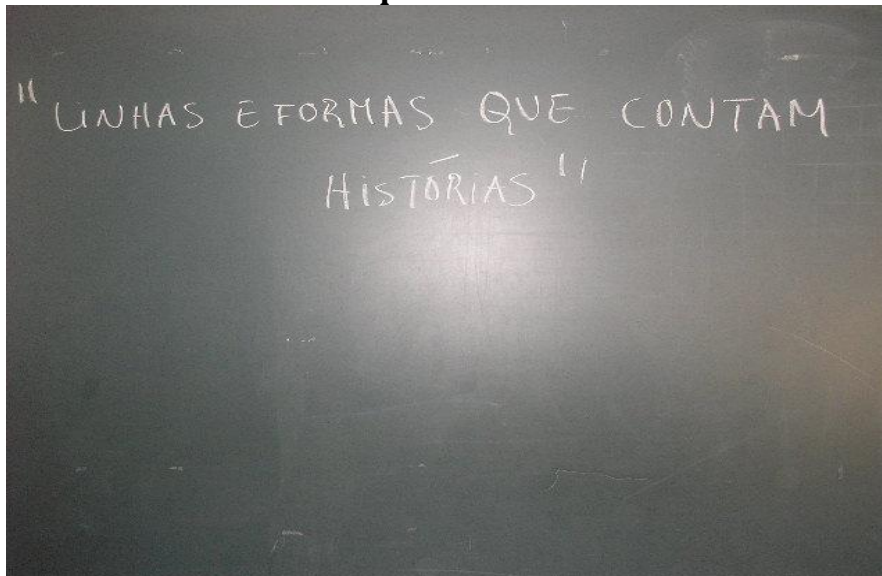 "LINHAS E FORMAS QUE CONTAM
HISTÓRIAS"